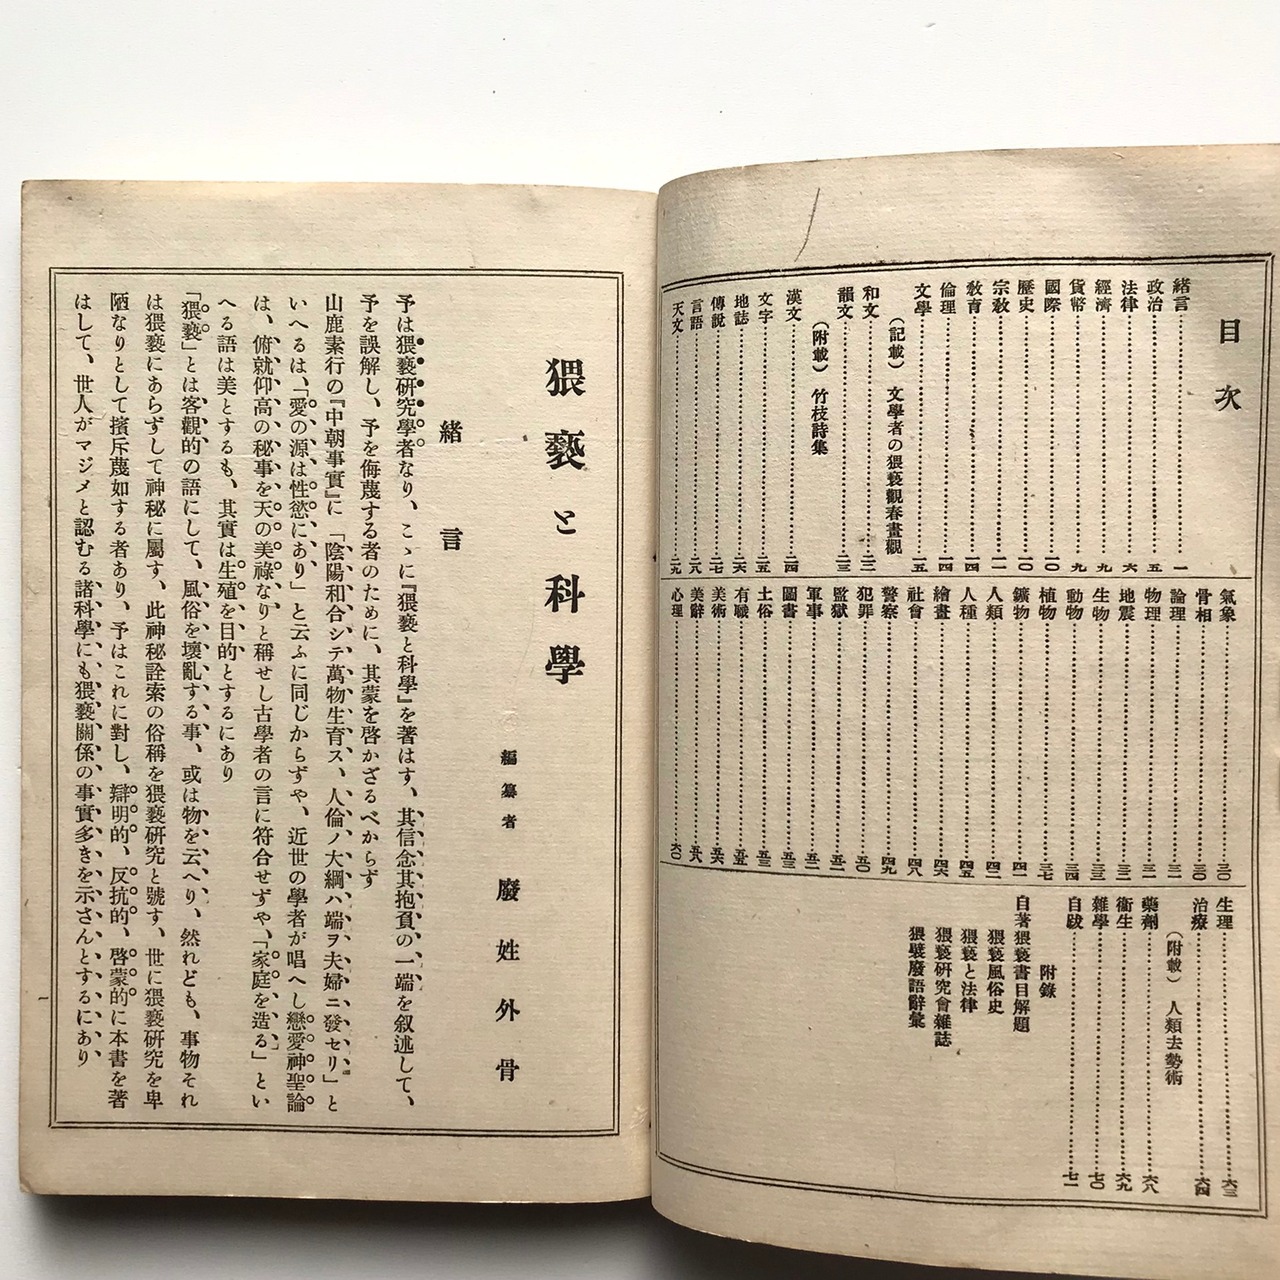 目次
緒言 一
政治 五
法律 六
經濟 九
貨幣 九
國際 一〇
歷史 一〇
宗敎 一一
敎育 一四
倫理 一四
文學 一五
(記載) 文學者の猥褻觀春畫觀
和文 二二
韻文 二三
(附載) 竹枝詩集
漢文 二四
文字 二五
地誌 二六
傳說 二七
言語 二八
天文 二九
氣象 三〇
骨相 三〇
論理 三一
物理 三二
地震 三二
生物 三三
動物 三四
植物 三七
鑛物 四一
人類 四二
人種 四五
繪畫 四六
社會 四八
警察 四九
犯罪 五〇
監獄 五一
軍事 五二
圖書 五三
土俗 五三
有職 五五
美術 五六
美辭 五八
心理 六〇
生理 六三
治療 六四
(附載) 人類去勢術
藥劑 六八
衞生 六九
雜學 七〇
自跋 七一
附錄
自著猥褻書目解題
猥褻風俗史
猥褻と法律
猥褻硏究會雜誌
猥褻廢語辭彙
猥褻と科學
編纂者 廢姓外骨
緒言
予は猥褻硏究學者なり、こゝに『猥褻と科學』を著はす、其信念其抱負の一端を叙述して、
予を誤解し、予を侮蔑する者のために、其蒙を啓かざるべからず
山鹿素行の『中朝事實』に「陰陽和合シテ萬物生育ス、人倫ノ大綱ハ端ヲ夫婦ニ發セリ」と
いへるは、「愛の源は性慾にあり」と云ふに同じからずや、近世の學者が唱へし戀愛神聖論
は、俯就仰高の秘事を天の美祿なりと稱せし古學者の言に符合せずや、「家庭を造る」とい
へる語は美とするも、其實は生殖を目的とするにあり
「猥褻」とは客觀的の語にして、風俗を壞亂する事、或は物を云へり、然れども、事物それ
は猥褻にあらずして神秘に屬す、此神秘詮索の俗稱を猥褻硏究と號す、世に猥褻硏究を卑
陋なりとして擯斥蔑如する者あり、予はこれに對し、辯明的、反抗的、啓蒙的に本書を著
はして、世人がマジメと認むる諸科學にも猥褻關係の事實多きを示さんとするにあり
一